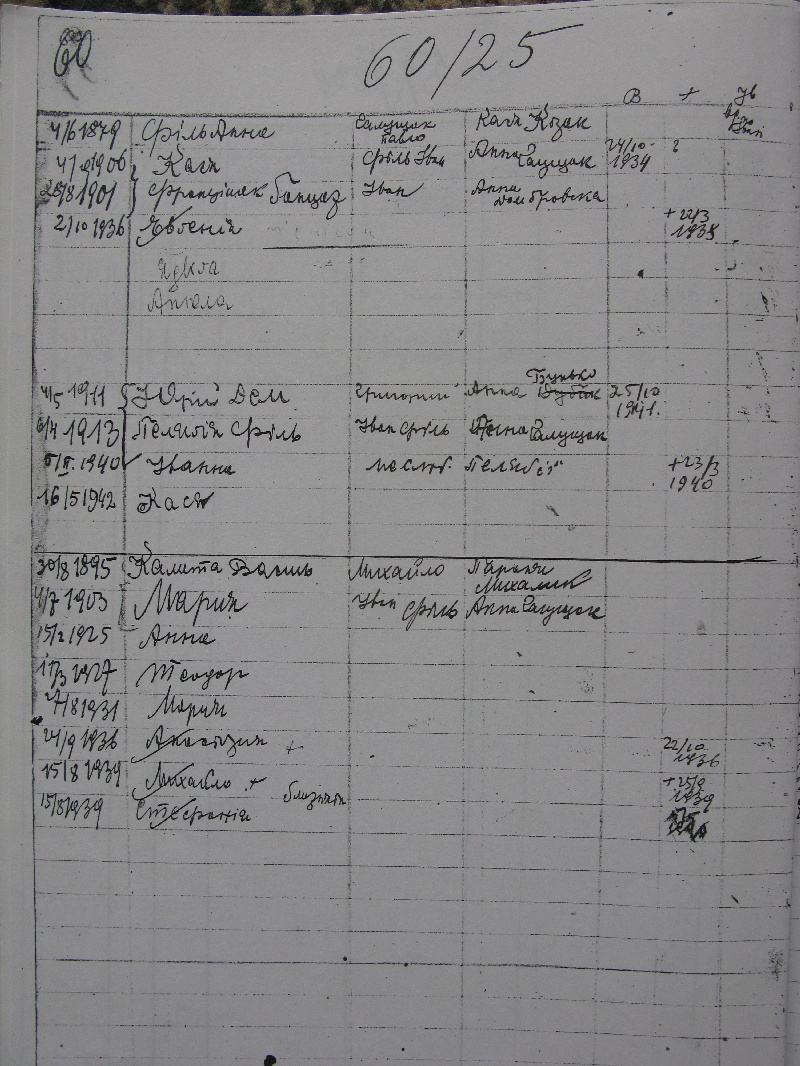 60 60/25
В +
4/6 1879 Філь Анна Салущак Павло Кася Козак
1906 Кася Філь Іван Анна Салущак 24/10 1934 ?
28/8 1901 Францішек Іван Анна Домбровска
2/10 1936 Євгенія +22/3 1938
Ядвіга
Анєла
4/5 1911 Юрій Дем Григорій Анна Бунько 25/10 1941.
6/4 1913 Пелягія Філь Іван Філь Анна Салущак
1940 Іванна неслюб. Пелягії +23/3 1940
16/5 1942 Кася
30/8 1895 Калита Василь Михайло Параня Михалик
4/7 1903 Мария Іван Філь Анна Салущак
15/2 1925 Анна
17/3 1927 Теодор
7/8 1931 Мария
24/9 1936 Анастазия + 22/10 1936
15/8 1939 Михайло + близнята +25/9 1939
15/8 1939 Стефанія